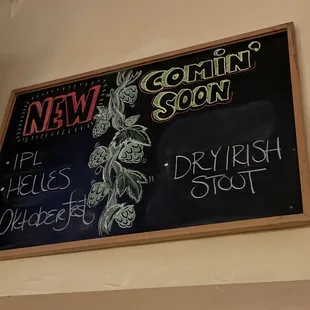 NEW
· IPL
· HELLES
OKtoberfest
COMIN'
SOON
· DRY IRISH
STOUT